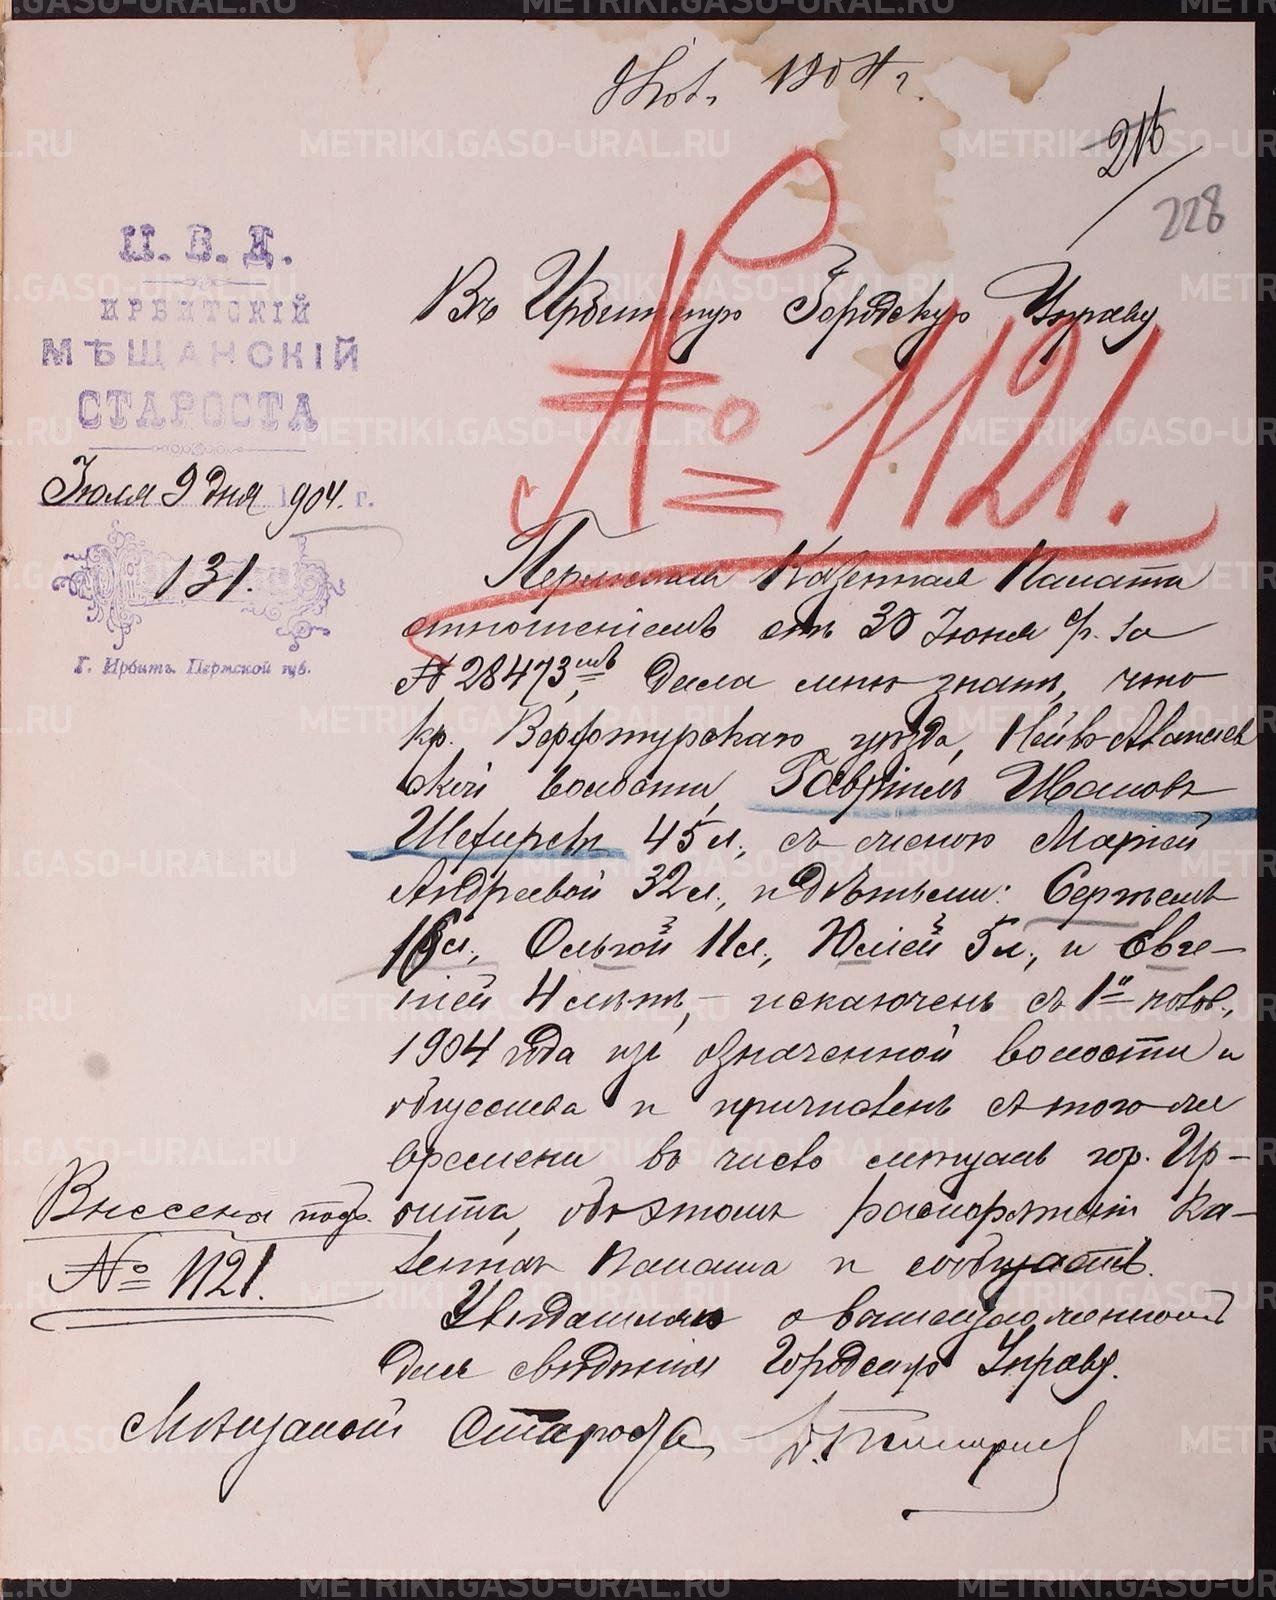 1904 г.
216
228
М. В. Д.
ИРБИТСКІЙ
МѢЩАНСКІЙ
СТАРОСТА
Іюля 9 дня 1904 г.
131.
Г. Ирбитъ Пермской губ.
Въ Ирбитскую Городскую Управу
№ 1121.
Пермская Казенная Палата
отношеніемъ отъ 30 Іюня с/г. за
№ 28473, дала мнѣ знать, что
кр. Верхотурскаго уѣзда, Нейво-Алапаев
ской волости, Гавріилъ Ивановъ
45 л., съ женою Маріей
Андреевой 32 л., и дѣтьми: Сергѣемъ
16 л., Ольгой 11 л., Юліей 5 л., и Евге-
ніей 4 лѣтъ, – исключенъ съ 1й полов.,
1904 года изъ означенной волости и
общества и причисленъ съ того же
времени въ число мѣщанъ гор. Ир-
бита, объ этомъ распоряженіи Ка-
зенная Палата и сообщаетъ.
Увѣдомляю о вышеизложенномъ
для свѣдѣнія Городскую Управу.
Мѣщанскій Староста
Внесены подъ
№ 1121.
METRIKI.GASO-URAL.RU